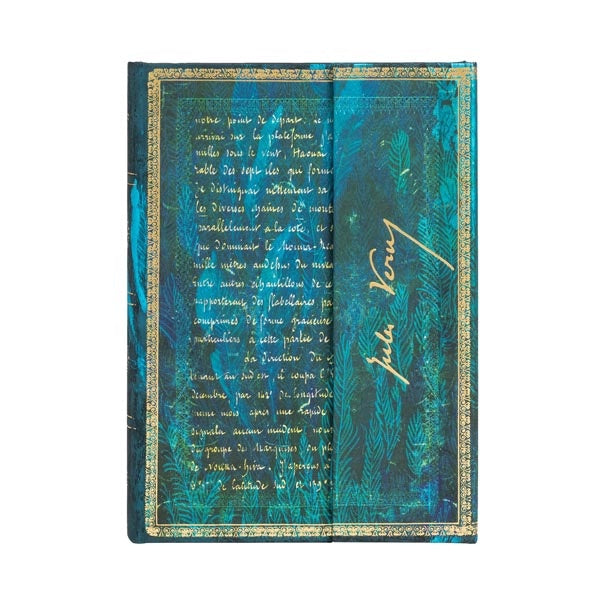 notre point de départ. Le n
arrivai sur la plateforme j'a
milles sous le vent, Haouaï
rable des sept iles que forme
Je distinguai nettement sa
les diverses chaines de mont
parallèlement a la cote, et s
que dominait le Mouna-Rea
mille mètres audessus du nivea
Entre autres échantillons de ce
rapportèrent des flabellaires pa
comprimés de forme gracieuse
particuliers à cette partie de
La direction du
au sud est. il coupa l'
décembre, par 142° de longitud
même mois, après une rapide
signala aucun incident, nous
du groupe de Marquises. Du pl
de Nouka-hiva. J'aperçus à
de latitude sud et 139°
Jules Verne